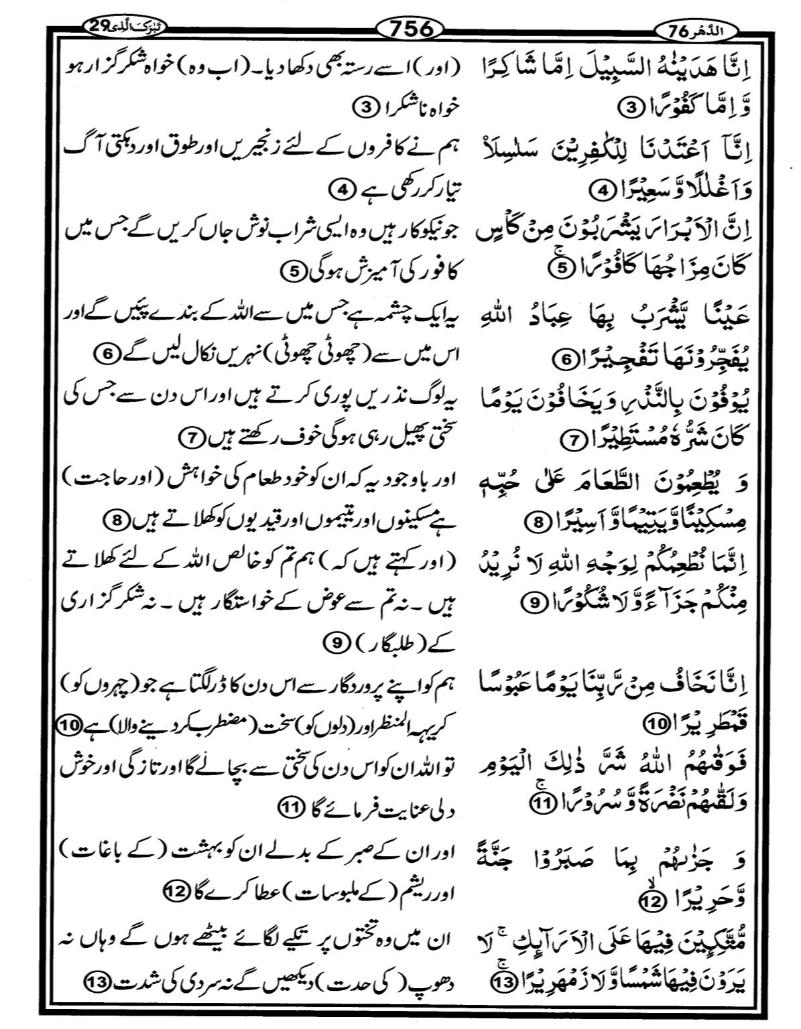 الدّهر 76
756
تبٰرک الّذی 29
اِنَّا هَدَيْنٰهُ السَّبِيْلَ اِمَّا شَاكِرًا
وَّاِمَّا كَفُوْرًا 3
(اور) اسے رستہ بھی دکھا دیا۔ (اب وہ) خواہ شکر گزار ہو
خواہ ناشکرا 3
اِنَّاۤ اَعْتَدْنَا لِلْكٰفِرِيْنَ سَلٰسِلَاۡ
وَاَغْلٰلًا وَّسَعِيْرًا 4
ہم نے کافروں کے لئے زنجیریں اور طوق اور دہکتی آگ
تیار کر رکھی ہے 4
اِنَّ الْاَبْرَارَ يَشْرَبُوْنَ مِنْ كَاْسٍ
كَانَ مِزَاجُهَا كَافُوْرًاۚ 5
جو نیکو کار ہیں وہ ایسی شراب نوش جاں کریں گے جس میں
کافور کی آمیزش ہوگی 5
عَيْنًا يَّشْرَبُ بِهَا عِبَادُ اللّٰهِ
يُفَجِّرُوْنَهَا تَفْجِيْرًا 6
یہ ایک چشمہ ہے جس میں سے اللہ کے بندے پئیں گے اور
اس میں سے (چھوٹی چھوٹی) نہریں نکال لیں گے 6
يُوْفُوْنَ بِالنَّذْرِ وَيَخَافُوْنَ يَوْمًا
كَانَ شَرُّهٗ مُسْتَطِيْرًا 7
یہ لوگ نذریں پوری کرتے ہیں اور اس دن سے جس کی
سختی پھیل رہی ہوگی خوف رکھتے ہیں 7
وَ يُطْعِمُوْنَ الطَّعَامَ عَلٰى حُبِّهٖ
مِسْكِيْنًا وَّيَتِيْمًا وَّاَسِيْرًا 8
اور باوجود یہ کہ ان کو خود طعام کی خواہش (اور حاجت)
ہے مسکینوں اور یتیموں اور قیدیوں کو کھلاتے ہیں 8
اِنَّمَا نُطْعِمُكُمْ لِوَجْهِ اللّٰهِ لَا نُرِيْدُ
مِنْكُمْ جَزَآءً وَّلَا شُكُوْرًا 9
(اور کہتے ہیں کہ) ہم تم کو خالص اللہ کے لئے کھلاتے
ہیں۔ نہ تم سے عوض کے خواستگار ہیں۔ نہ شکر گزاری
کے (طلبگار) 9
اِنَّا نَخَافُ مِنْ رَّبِّنَا يَوْمًا عَبُوْسًا
قَمْطَرِيْرًا 10
ہم کو اپنے پروردگار سے اس دن کا ڈر لگتا ہے جو (چہروں کو)
کریہہ المنظر اور (دلوں کو) سخت (مضطرب کر دینے والا) ہے 10
فَوَقٰىهُمُ اللّٰهُ شَرَّ ذٰلِكَ الْيَوْمِ
وَلَقّٰىهُمْ نَضْرَةً وَّسُرُوْرًاۚ 11
تو اللہ ان کو اس دن کی سختی سے بچا لے گا اور تازگی اور خوش
دلی عنایت فرمائے گا 11
وَ جَزٰىهُمْ بِمَا صَبَرُوْا جَنَّةً
وَّحَرِيْرًاۙ 12
اور ان کے صبر کے بدلے ان کو بہشت (کے باغات)
اور ریشم (کے ملبوسات) عطا کرے گا 12
مُّتَّكِـِٕيْنَ فِيْهَا عَلَى الْاَرَآىِٕكِۚ لَا
يَرَوْنَ فِيْهَا شَمْسًا وَّلَا زَمْهَرِيْرًاۚ 13
ان میں وہ تختوں پر تکیے لگائے بیٹھے ہوں گے وہاں نہ
دھوپ (کی حدت) دیکھیں گے نہ سردی کی شدت 13